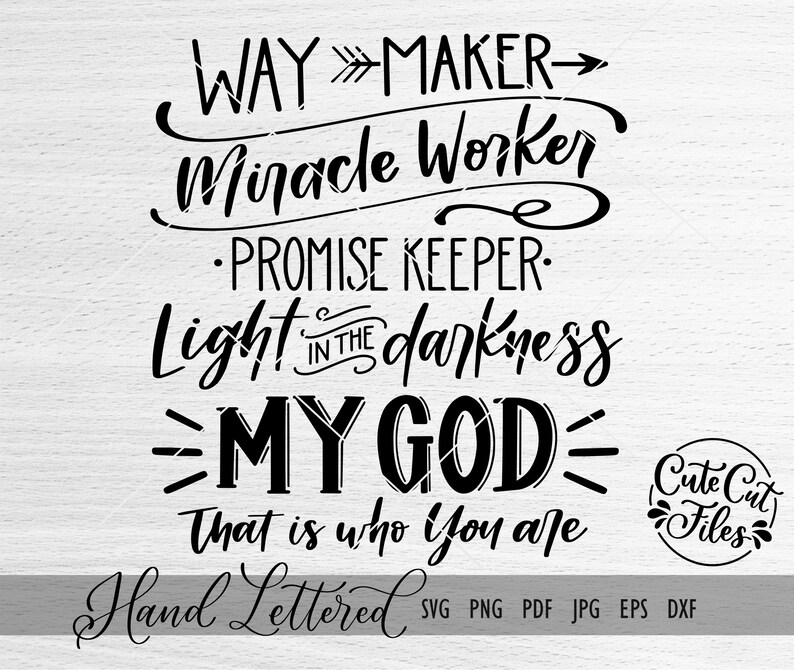 WAY MAKER
Miracle Worker
•PROMISE KEEPER•
Light IN THE darkness
MY GOD
That is who You are
Cute Cut
Files
Hand Lettered SVG PNG PDF JPG EPS DXF